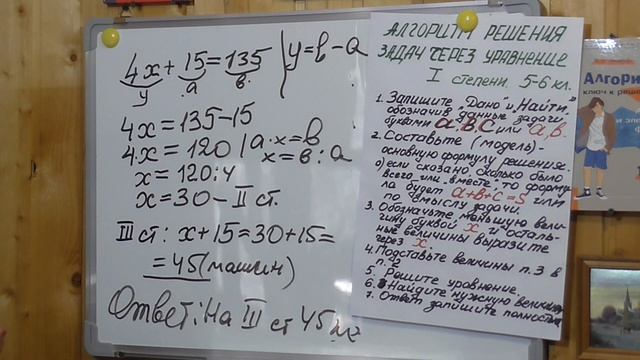 4x + 15 = 135 | y = в - а
y а в.
4x = 135 - 15
4x = 120 | а · x = в
x = в : а
x = 120 : 4
x = 30 - II ст.
III ст: x + 15 = 30 + 15 =
= 45 (машин)
Ответ: На III ст 45
АЛГОРИТМ РЕШЕНИЯ
ЗАДАЧ ЧЕРЕЗ УРАВНЕНИЕ
I степени, 5-6 кл.
1. Запишите „Дано" и „Найти",
обозначив данные задачи
буквами а.в.с или а,в.
2. Составьте (модель) -
основную формулу решения.
а) если сказано сколько было
всего или вместе, то форму
ла будет а+в+с=S или
по смыслу задачи.
3. Обозначьте меньшую вели
чину буквой x и осталь
ные величины выразите
через x.
4. Подставьте величины п.3 в
п. 2
5. Решите уравнение.
6. Найдите нужную величину
7. Ответ запишите полностью
Алгори
ключ к реше